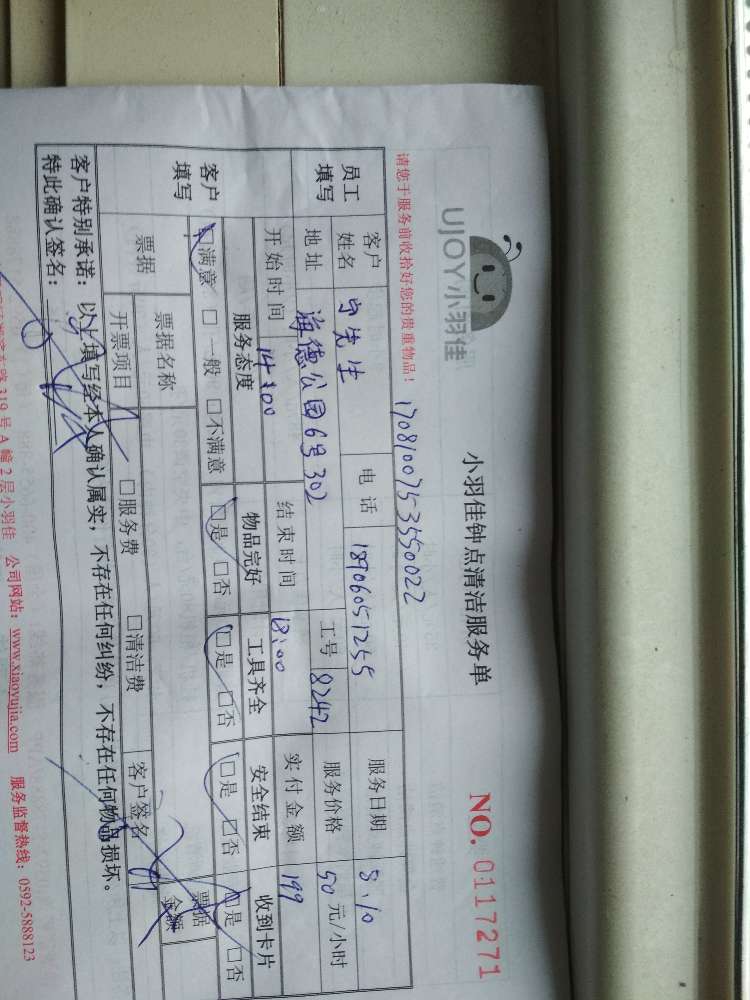 UJOY小羽佳
小羽佳钟点清洁服务单
NO. 0117271
请您于服务前收拾好您的贵重物品！
17081007535550022
员工填写
客户姓名 宁先生 电话 18906051255 服务日期 8.10
地址 海德公园6号302 工号 8242 服务价格 50元/小时
开始时间 14:00 结束时间 18:00 实付金额 199
客户填写
服务态度 物品完好 工具齐全 安全结束 收到卡片
□满意 □一般 □不满意 □是 □否 □是 □否 □是 □否 □是 □否
票据 票据名称 票据金额
开票项目 □服务费 □清洁费 客户签名
客户特别承诺：以上填写经本人确认属实，不存在任何纠纷，不存在任何物品损坏。
特此确认签名：
路319号A幢2层小羽佳 公司网站：www.xiaoyujia.com 服务监督热线：0592-5888123